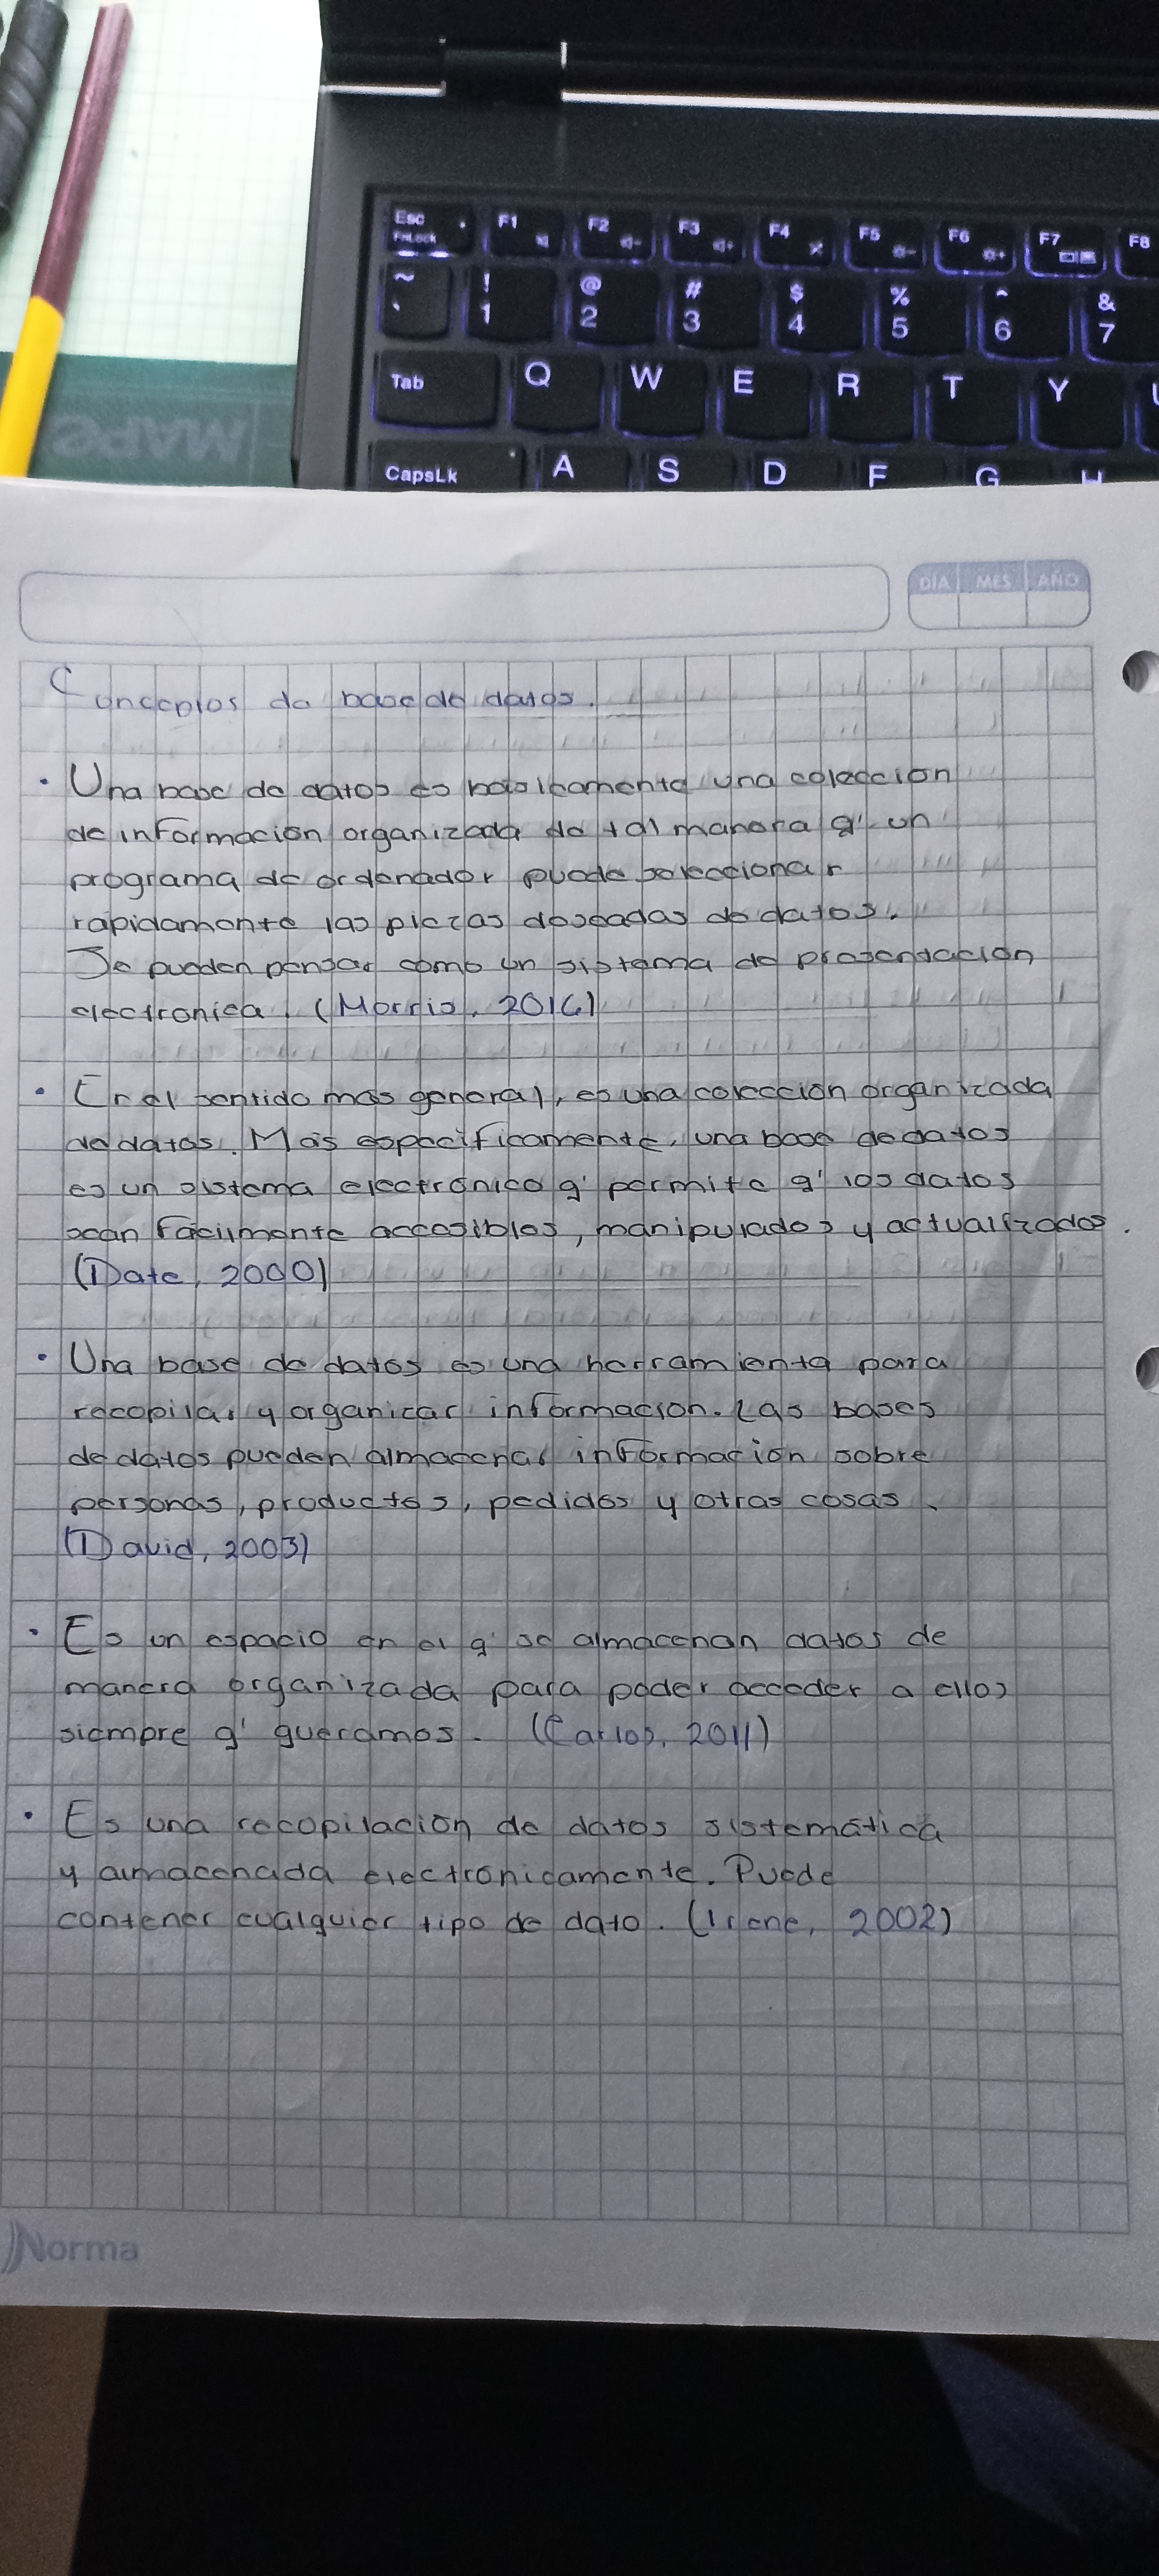 Esc
FnLock
F1
F2
F3
F4
F5
F6
F7
F8
~
`
!
1
@
2
#
3
$
4
%
5
^
6
&
7
Tab
Q
W
E
R
T
Y
CapsLk
A
S
D
F
G
H
DÍA MES AÑO
Conceptos de base de datos.
• Una base de datos es basicamente una colección
de información organizada de tal manera q' un
programa de ordenador puede seleccionar
rapidamente las piezas deseadas de datos.
Se pueden pensar como un sistema de presentación
electronica. (Morris, 2016)
• En el sentido más general, es una colección organizada
de datos. Más especificamente, una base de datos
es un sistema electrónico q' permite q' los datos
sean facilmente accesibles, manipulados y actualizados.
(Date, 2000)
• Una base de datos es una herramienta para
recopilar y organizar información. Las bases
de datos pueden almacenar información sobre
personas, productos, pedidos y otras cosas.
(David, 2003)
• Es un espacio en el q' se almacenan datos de
manera organizada para poder acceder a ellos
siempre q' queramos. (Carlos, 2011)
• Es una recopilación de datos sistemática
y almacenada electronicamente. Puede
contener cualquier tipo de dato. (Irene, 2002)
Norma